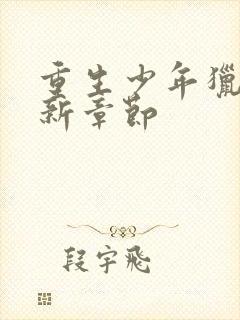 重生少年獵
新章節
段宇飛